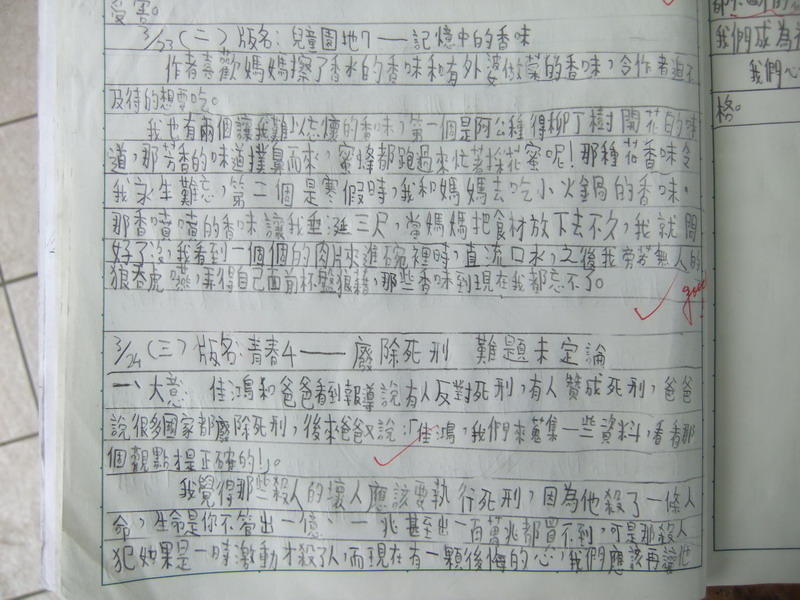 受害。
3/23(二)版名:兒童園地7——記憶中的香味
作者喜歡媽媽擦了香水的香味和有外婆做菜的香味,令作者迫不
及待的想要吃。
我也有兩個讓我難以忘懷的香味,第一個是阿公種得柳丁樹開花的味
道,那芳香的味道撲鼻而來,蜜蜂都跑過來忙著採花蜜呢!那種花香味令
我永生難忘,第二個是寒假時,我和媽媽去吃小火鍋的香味。
那香噴噴的香味讓我垂涎三尺,當媽媽把食材放下去不久,我就問
好了沒,我看到一個個的肉片夾進碗裡時,直流口水,之後我旁若無人的
狼吞虎嚥,弄得自己面前杯盤狼藉,那些香味到現在我都忘不了。
good
3/24(三)版名:青春4——廢除死刑 難題未定論
一、大意 佳鴻和爸爸看到報導說有人反對死刑,有人贊成死刑,爸爸
說很多國家都廢除死刑,後來爸爸又說:「佳鴻,我們來蒐集一些資料,看看那
個觀點才是正確的!」。
我覺得那些殺人的壞人應該要執行死刑,因為他殺了一條人
命,生命是你不管出一億、一兆甚至出一百萬兆都買不到,可是那殺人
犯如果是一時激動才殺了人,而現在有一顆後悔的心,我們應該再讓他
我們成為
我們心
格。